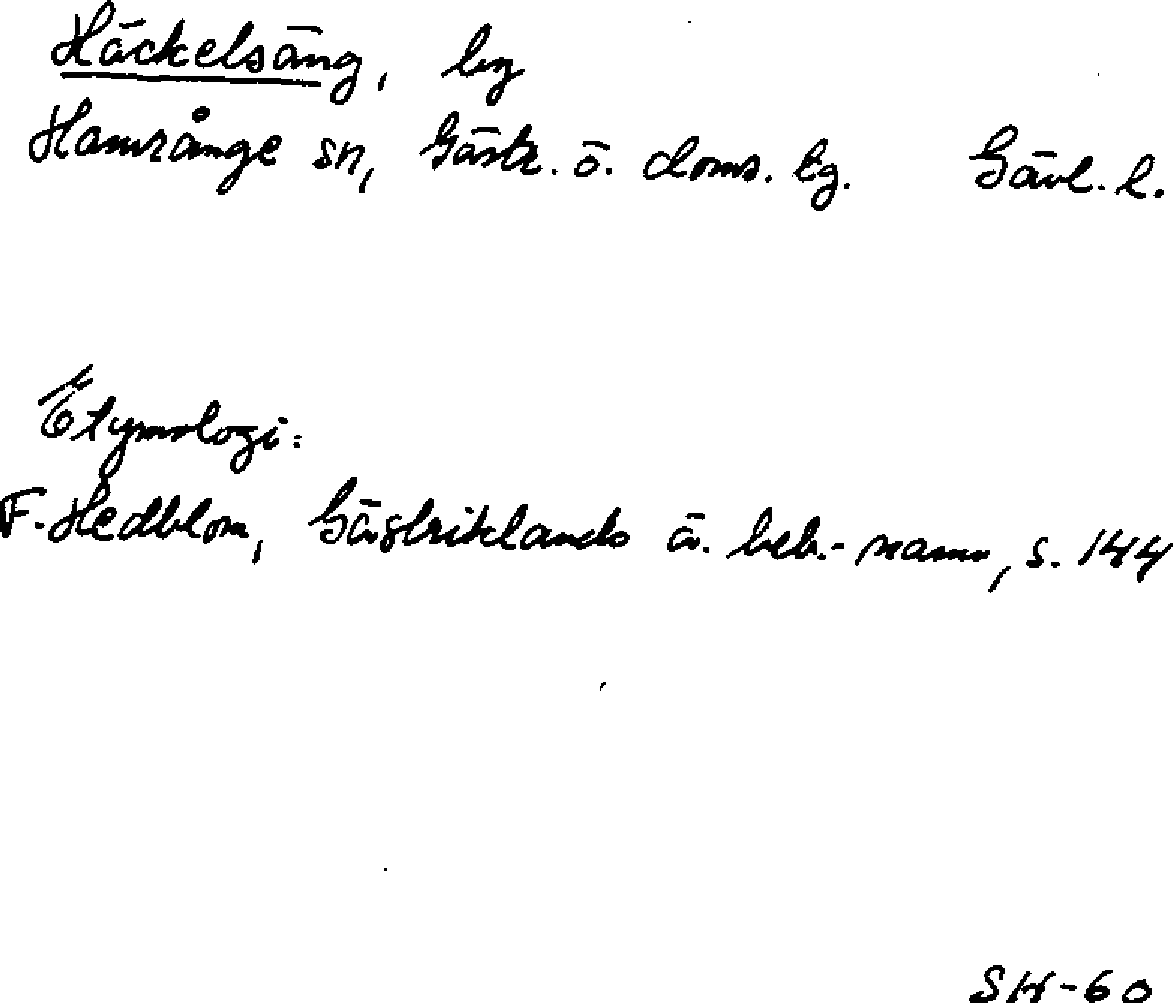 Häckelsäng, by
Hamrånge sn, Gästr. ö. doms. tg. Gävl. l.
Etymologi:
F. Hedblom, Gästriklands ä. beb.-namn, s. 144
SH-60